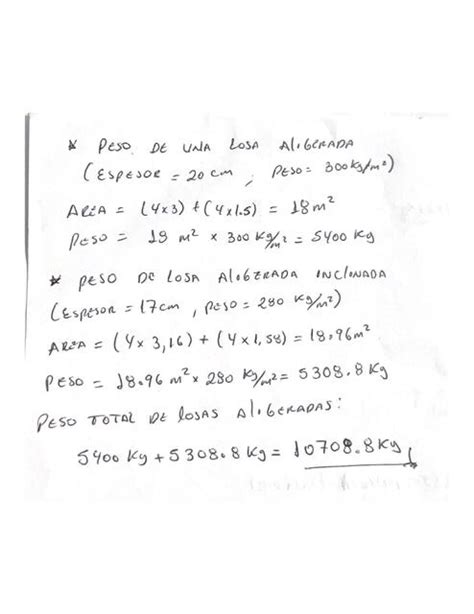 * PESO DE UNA LOSA ALIGERADA
(ESPESOR = 20 cm ; PESO = 300 kg/m²)
AREA = (4x3) + (4x1.5) = 18 m²
PESO = 18 m² x 300 kg/m² = 5400 Kg
* PESO DE LOSA ALIGERADA INCLINADA
(ESPESOR = 17cm , PESO = 280 kg/m²)
AREA = (4x 3,16) + (4x1,58) = 18.96m²
PESO = 18.96 m² x 280 kg/m² = 5308.8 Kg
PESO TOTAL DE LOSAS ALIGERADAS:
5400 Kg + 5308.8 Kg = 10708.8Kg